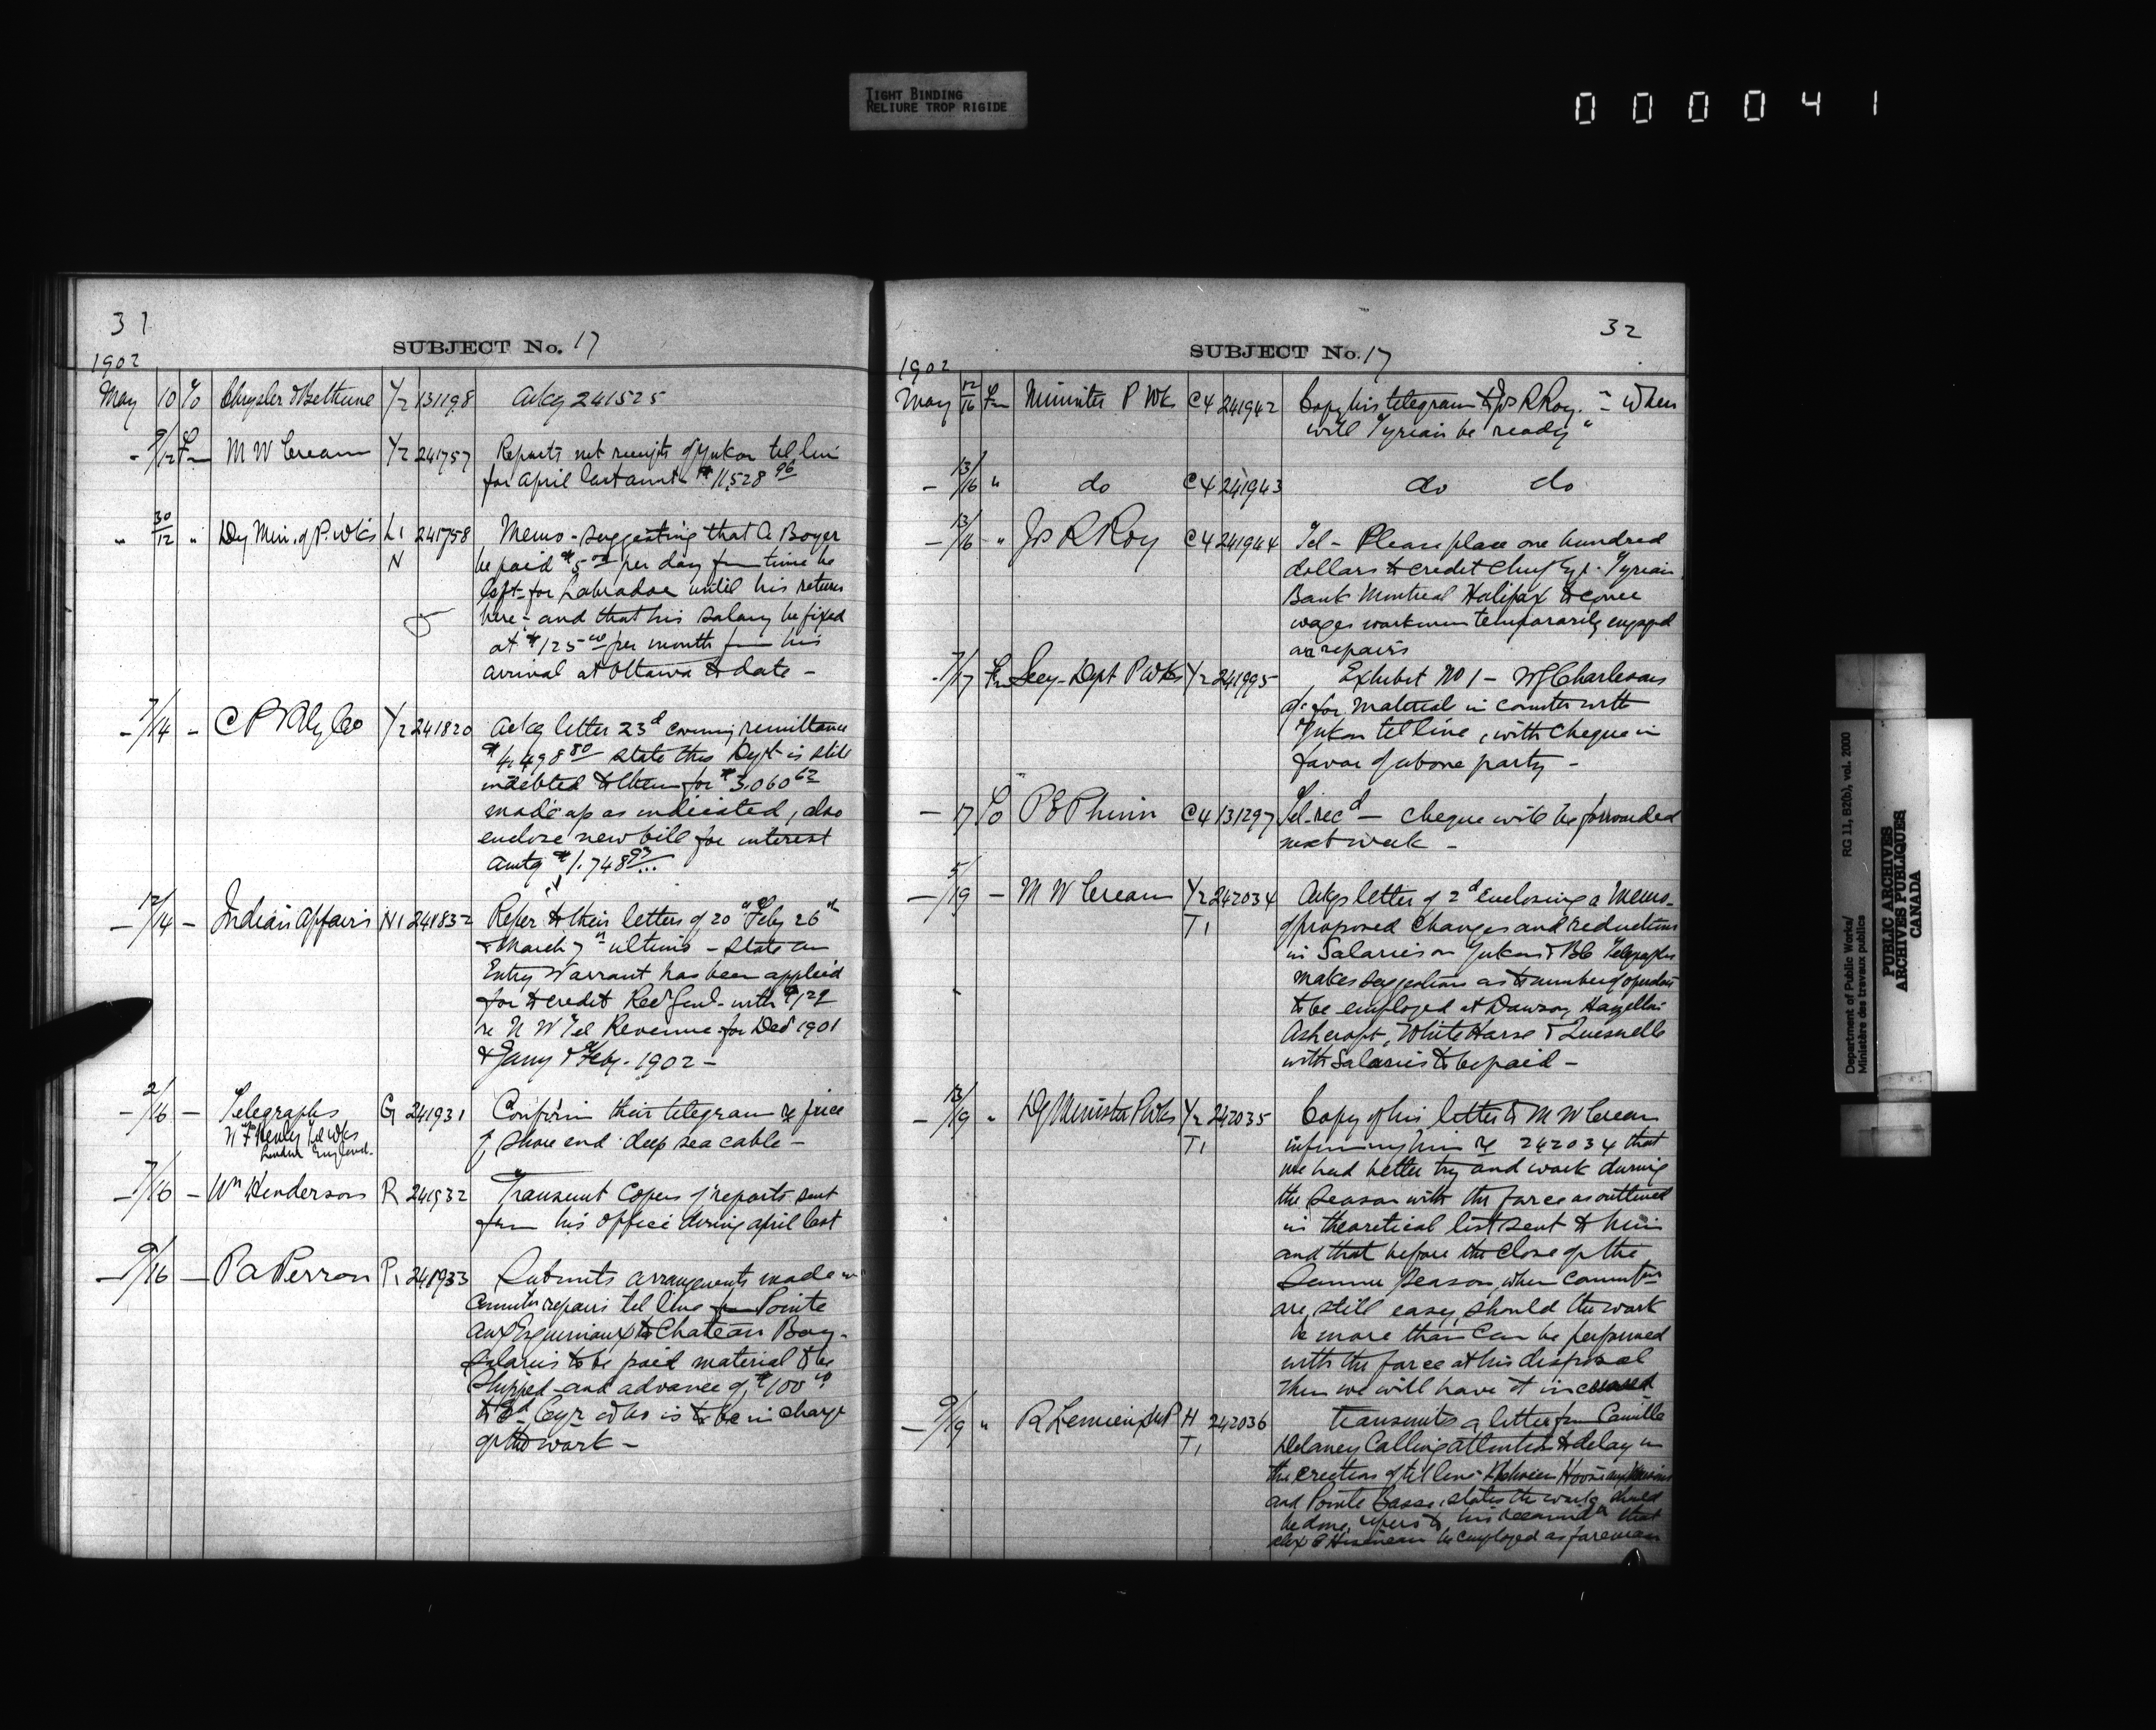 TIGHT BINDING
RELIURE TROP RIGIDE
000041
31
SUBJECT No. 17
1902
May 10 To Chrysler & Bethune Y2 131198 Ackg 241525
- 9/12 Fm M W Crean Y2 241757 Reports net receipts of Yukon tel line
for April last amt $11,528 96
" 30/12 " Dy Min. of P. Wks L1 241758 Memo - suggesting that A Boyer
N be paid $5 00 per day from time he
left for Labrador until his return
here - and that his salary be fixed
at $125 00 per month from his
arrival at Ottawa to date -
- 7/14 - C P Rly Co Y2 241820 Ackg letter 23d covering remittance
$4,498 80 state this Dept is still
indebted to them for $3,060 62
made up as indicated, also
enclose new bill for interest
amtg $1,748 93
- 12/14 - Indian Affairs N1 241832 Refer to their letters of 20th Feby 26th
& March 7th ultimo - state an
Entry Warrant has been applied
for to credit Rec Genl - with $122
re N W Tel Revenue for Dec 1901
& Jany & Feby. 1902 -
- 2/16 - Telegraphs G 241931 Confirm their telegram re price
Henley Tel Wks
London England.
of shore end deep sea cable -
- 7/16 - Wm Henderson R 241932 Transmit Copies of reports sent
from his office during April last
- 9/16 - P A Perron P1 241933 Submits arrangements made in
connection repairs tel line from Pointe
aux Esquimaux to Chateau Bay -
Salaries to be paid material to be
shipped - and advance of $100 00
to Ed Cyr who is to be in charge
of the work -
32
SUBJECT No. 17
1902
May 12/16 Fm Minister P Wks C4 241942 Copy his telegram to Jos R Roy. - "When
will Tyrian be ready"
- 13/16 " do C4 241943 do do
- 13/16 " Jos R Roy C4 241944 Tel - Please place one hundred
dollars to credit Chief Eng. Tyrian
Bank Montreal Halifax to cover
wages workmen temporarily engaged
on repairs
- 7/17 Fm Secy - Dept P Wks Y2 241995 Exhibit No 1 - Charlesons
a/c for Material in connection with
Yukon tel line, with cheque in
favor of above party -
- 17 To P E Phinn C4 131297 Tel. recd - cheque will be forwarded
next week -
- 5/19 - M W Crean Y2 242034 Ackgs letter of 2d Enclosing a Memo -
T1 of proposed Changes and reductions
in Salaries on Yukon & BC Telegraphs
makes suggestions as to number of operators
to be employed at Dawson, Hazelton
Ashcroft, White Horse & Quesnelle
with Salaries to be paid -
- 13/19 " Dy Minister P Wks Y2 242035 Copy of his letter to M W Crean
T1 informing him re 242034 that
we had better try and work during
the Season with the force as outlined
in theoretical list sent to him
and that before the Close of the
Summer Season, when
are still easy, should the work
be more than Can be performed
with the force at his disposal
then we will have it increased
- 9/19 " R Lemieux M P H 242036 Transmits a letter from Camille
T1 Delaney Calling attention to delay in
the erection of tel line between
and Pointe Basse, states the work should
be done, refers to his that
Alex be employed as foreman
Department of Public Works/
Ministère des travaux publics
RG 11, B2(b), vol. 2000
PUBLIC ARCHIVES
ARCHIVES PUBLIQUES
CANADA